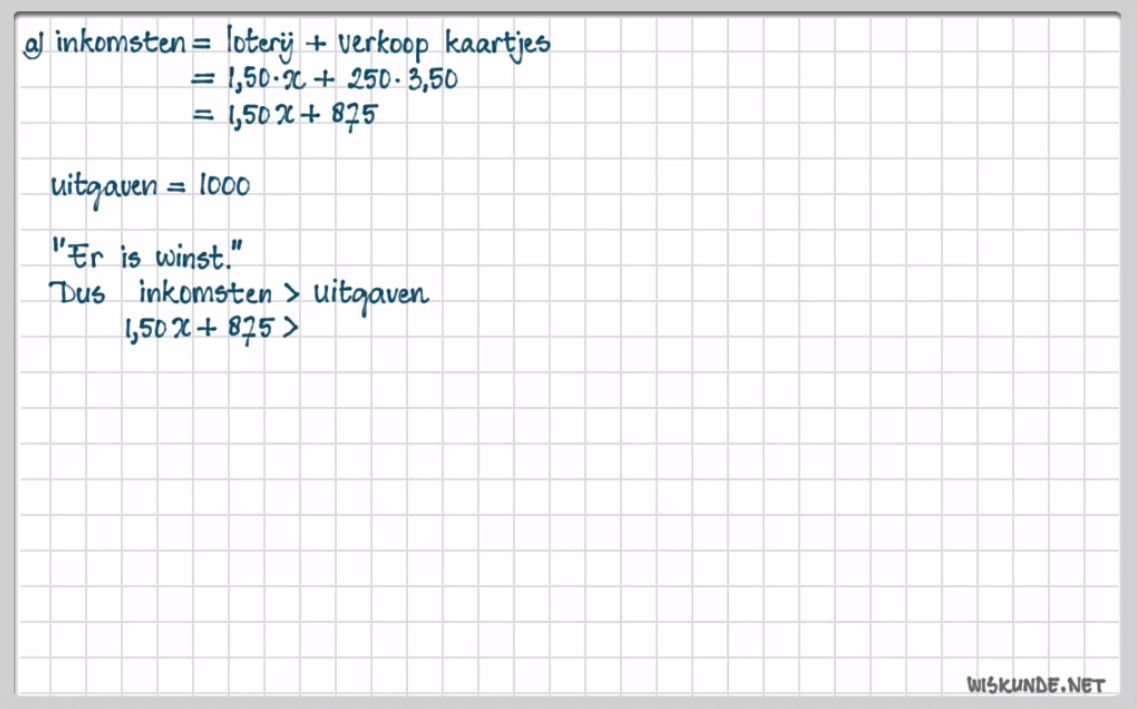 a) inkomsten = loterij + verkoop kaartjes
= 1,50·x + 250·3,50
= 1,50x + 875
uitgaven = 1000
"Er is winst."
Dus inkomsten > uitgaven
1,50x + 875 >
WISKUNDE.NET